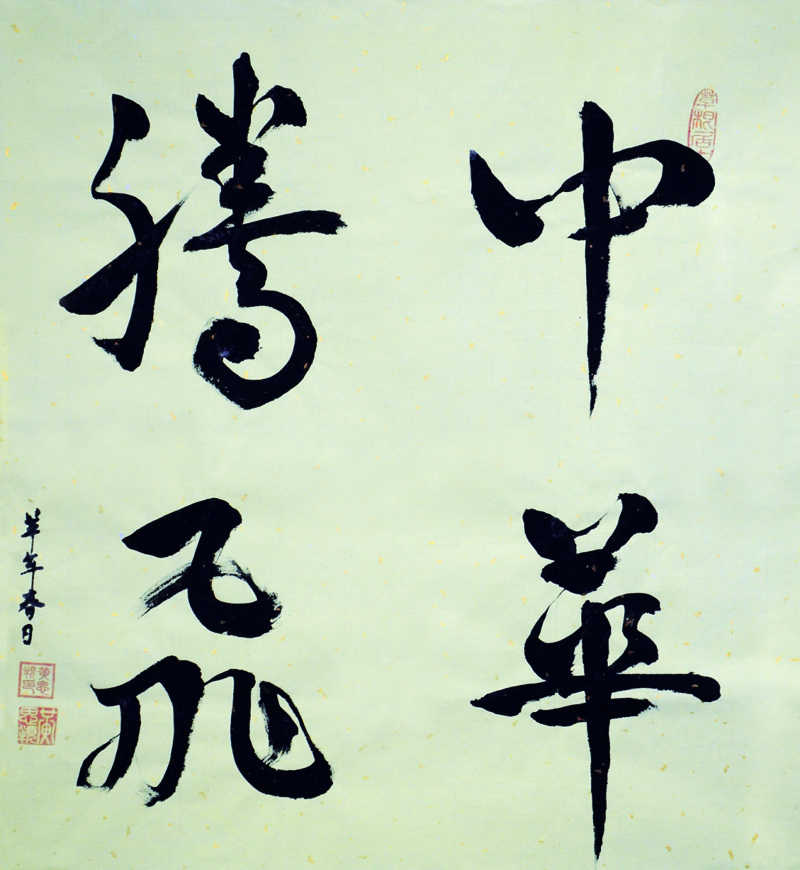 中華
騰飛
羊年春日